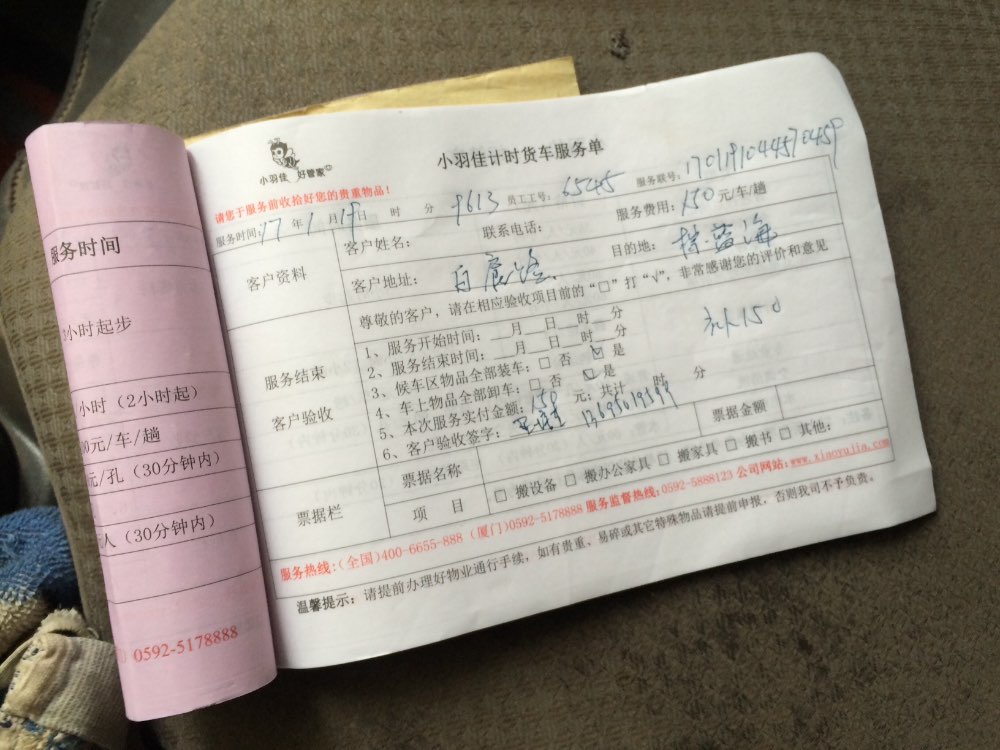 小羽佳 好管家
小羽佳计时货车服务单
请您于服务前收拾好您的贵重物品!
服务时间: 17 年 1 月 19 日 时 分 9613 员工工号: 6545 服务联号: 170119104457045P
客户资料 客户姓名: 联系电话: 服务费用: 150 元/车/趟
客户地址: 目的地:
尊敬的客户，请在相应验收项目前的“□”打“√”，非常感谢您的评价和意见
服务结束
客户验收
1、服务开始时间: __月__日__时__分
2、服务结束时间: __月__日__时__分
3、候车区物品全部装车: □ 否 ☑ 是
4、车上物品全部卸车: □ 否 ☑ 是
5、本次服务实付金额: 150 元; 共计 时 分
6、客户验收签字:
150
票据栏 票据名称 票据金额
项 目 □ 搬设备 □ 搬办公家具 □ 搬家具 □ 搬书 □ 其他:
服务热线:(全国)400-6655-888 (厦门)0592-5178888 服务监督热线:0592-5888123 公司网站:www.xiaoyujia.com
温馨提示: 请提前办理好物业通行手续，如有贵重、易碎或其它特殊物品请提前申报，否则我司不予负责。
服务时间
小时起步
小时 (2小时起)
0元/车/趟
元/孔 (30分钟内)
人 (30分钟内)
0592-5178888